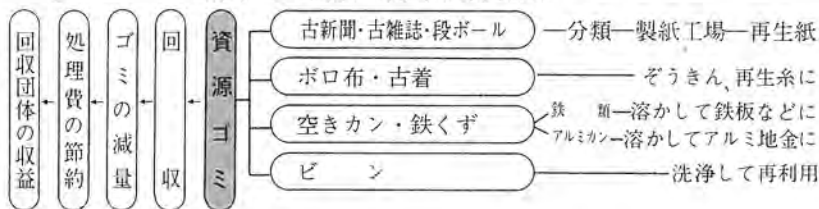 資源ゴミ
回収
ゴミの減量
処理費の節約
回収団体の収益
古新聞・古雑誌・段ボール―分類―製紙工場―再生紙
ボロ布・古着―ぞうきん、再生糸に
空きカン・鉄くず
鉄類―溶かして鉄板などに
アルミカン―溶かしてアルミ地金に
ビン―洗浄して再利用